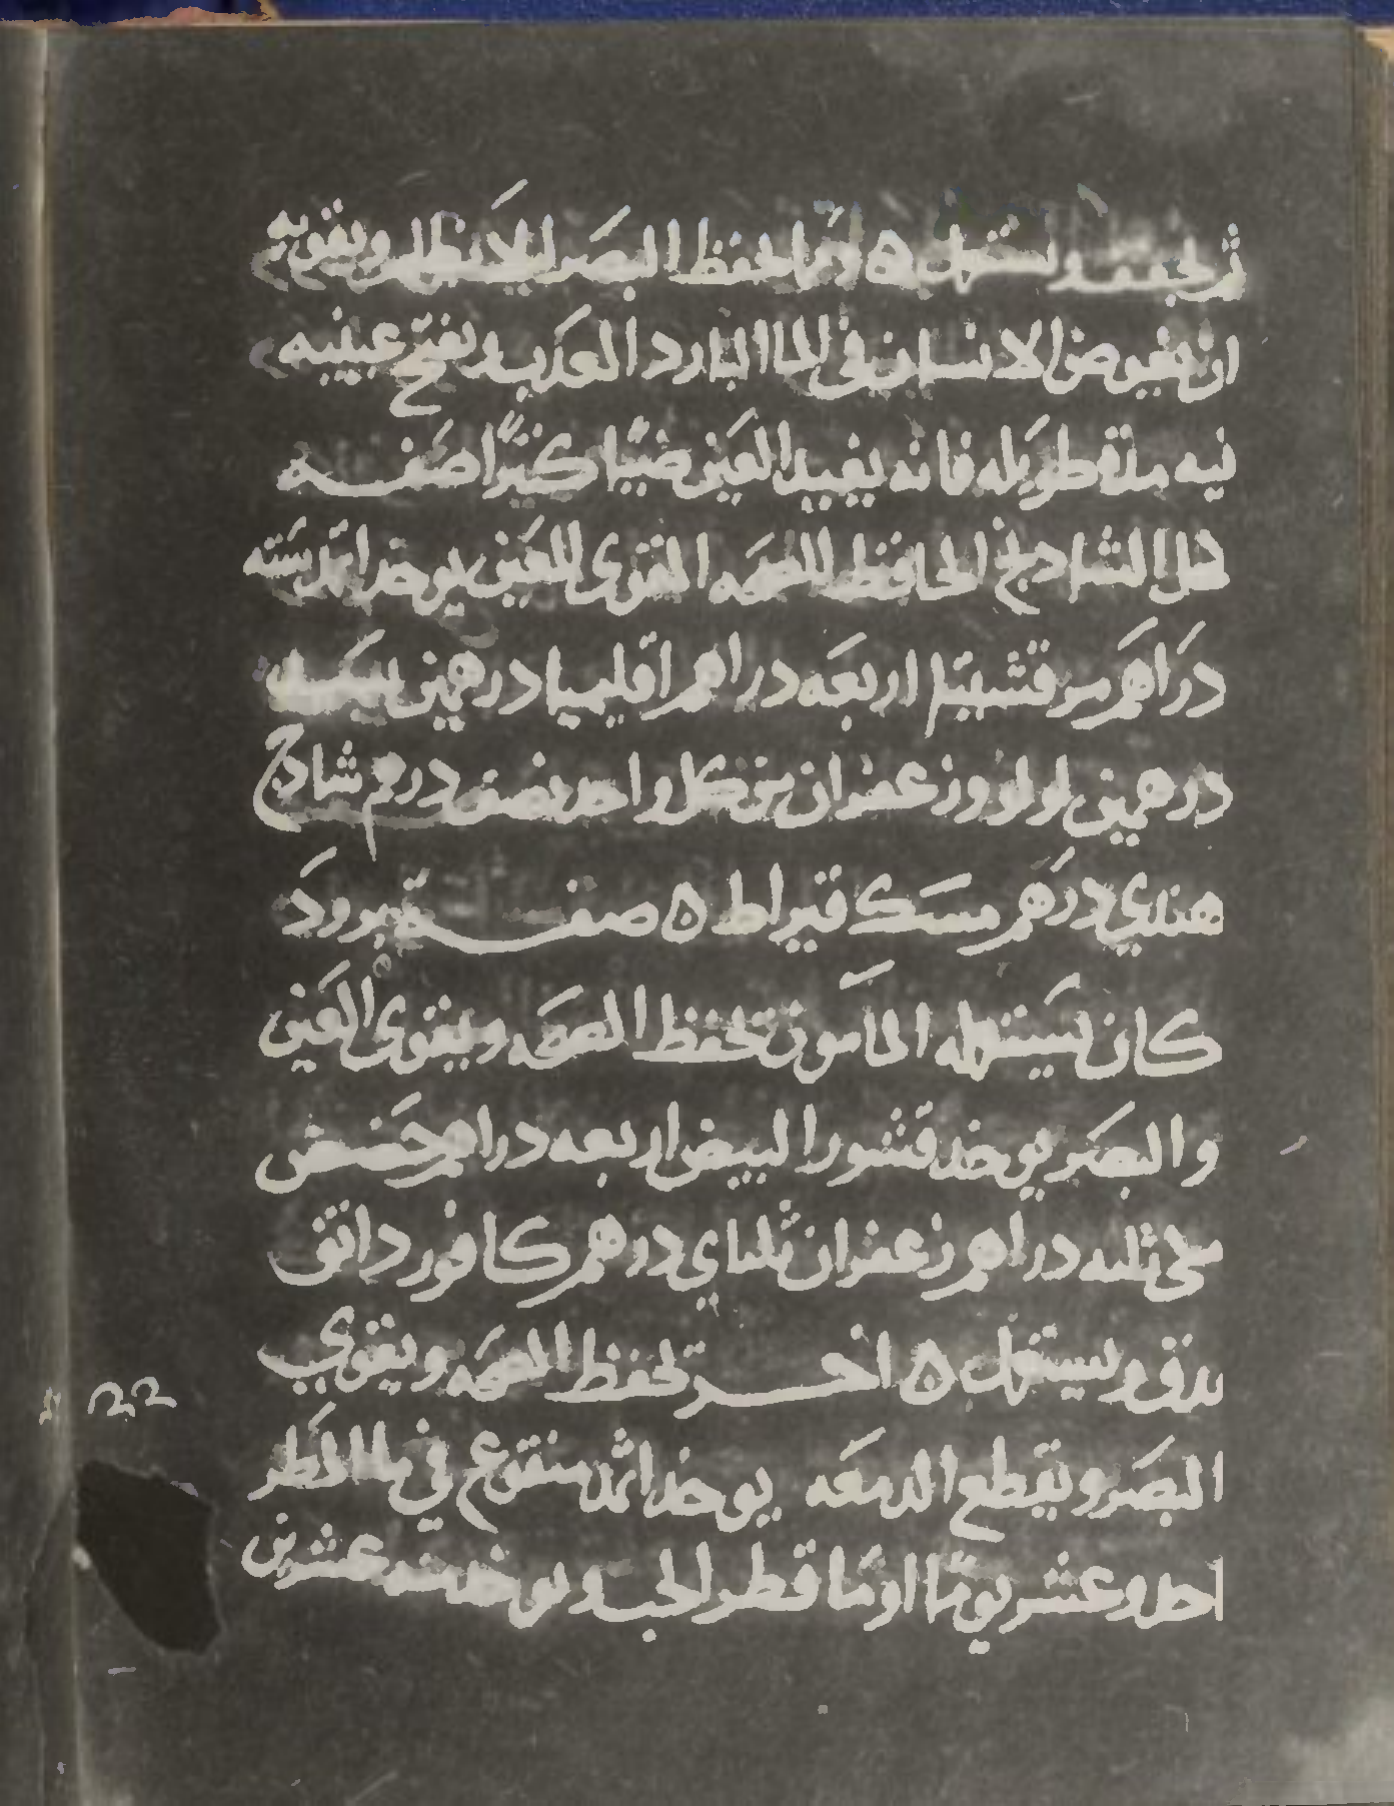 ثم يجففه ويستعمل ٥ ومما يحفظ البصر ليلا يظلم ويقويه
ان يغوص الانسان في الما البارد العذب ويفتح عينيه
فيه مدة طويله فانه يفيد العين ضيًا كثيرًا صفه
كحل الشادنج الحافظ للصحه المقوي للعين يوخذ اثمد سته
دراهم مرقشيثا اربعه دراهم اقليميا درهمين
درهمين لولو وزعفران من كل واحد نصف درهم شادنج
هندي درهم مسك قيراط ٥ صفة برود
كان يستعمله المامون تحفظ الصحه ويقوى العين
والبصر يوخذ قشور البيض اربعه دراهم حضض
مكي ثلثه دراهم زعفران ثلثاي درهم كافور دانق
يدق ويستعمل ٥ اخر تحفظ الصحه ويقوي
البصر ويقطع الدمعه يوخذ اثمد منقوع في ما المطر
احد وعشر يومًا او ما قطر الحب ويوخذ منه عشرين